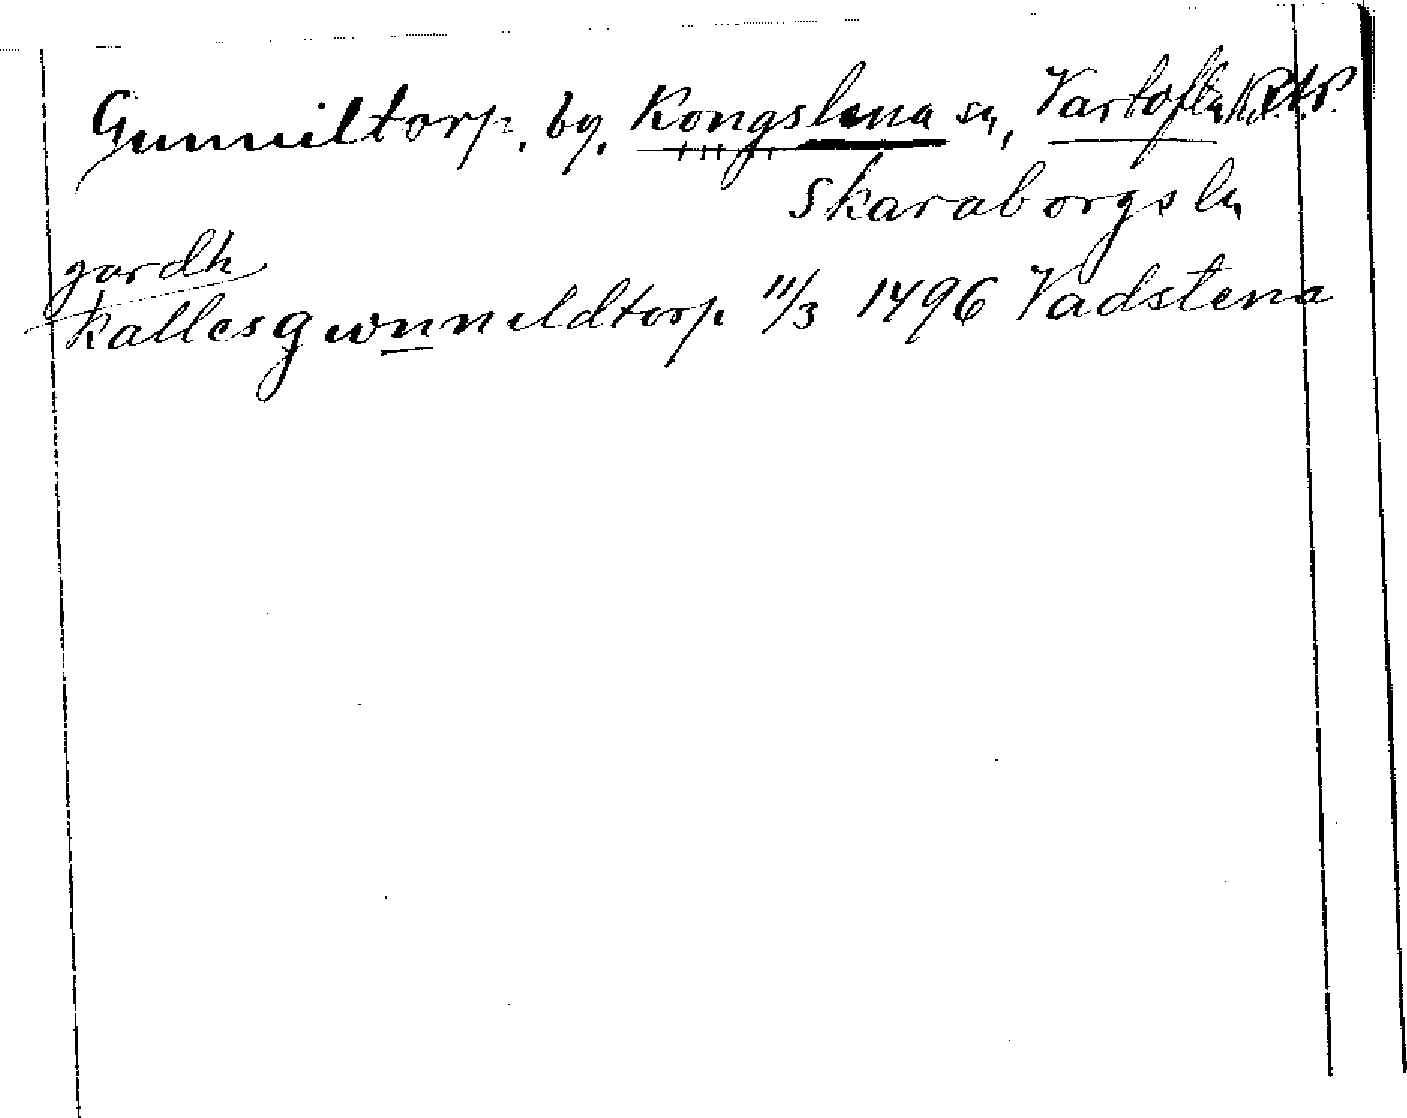 Gunniltorp, by, Kongslena sn, Vartofta
Skaraborgs ln
gardh
kalles gwnnildtorp 11/3 1496 Vadstena